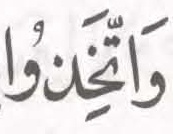 وَاتَّخِذُوا